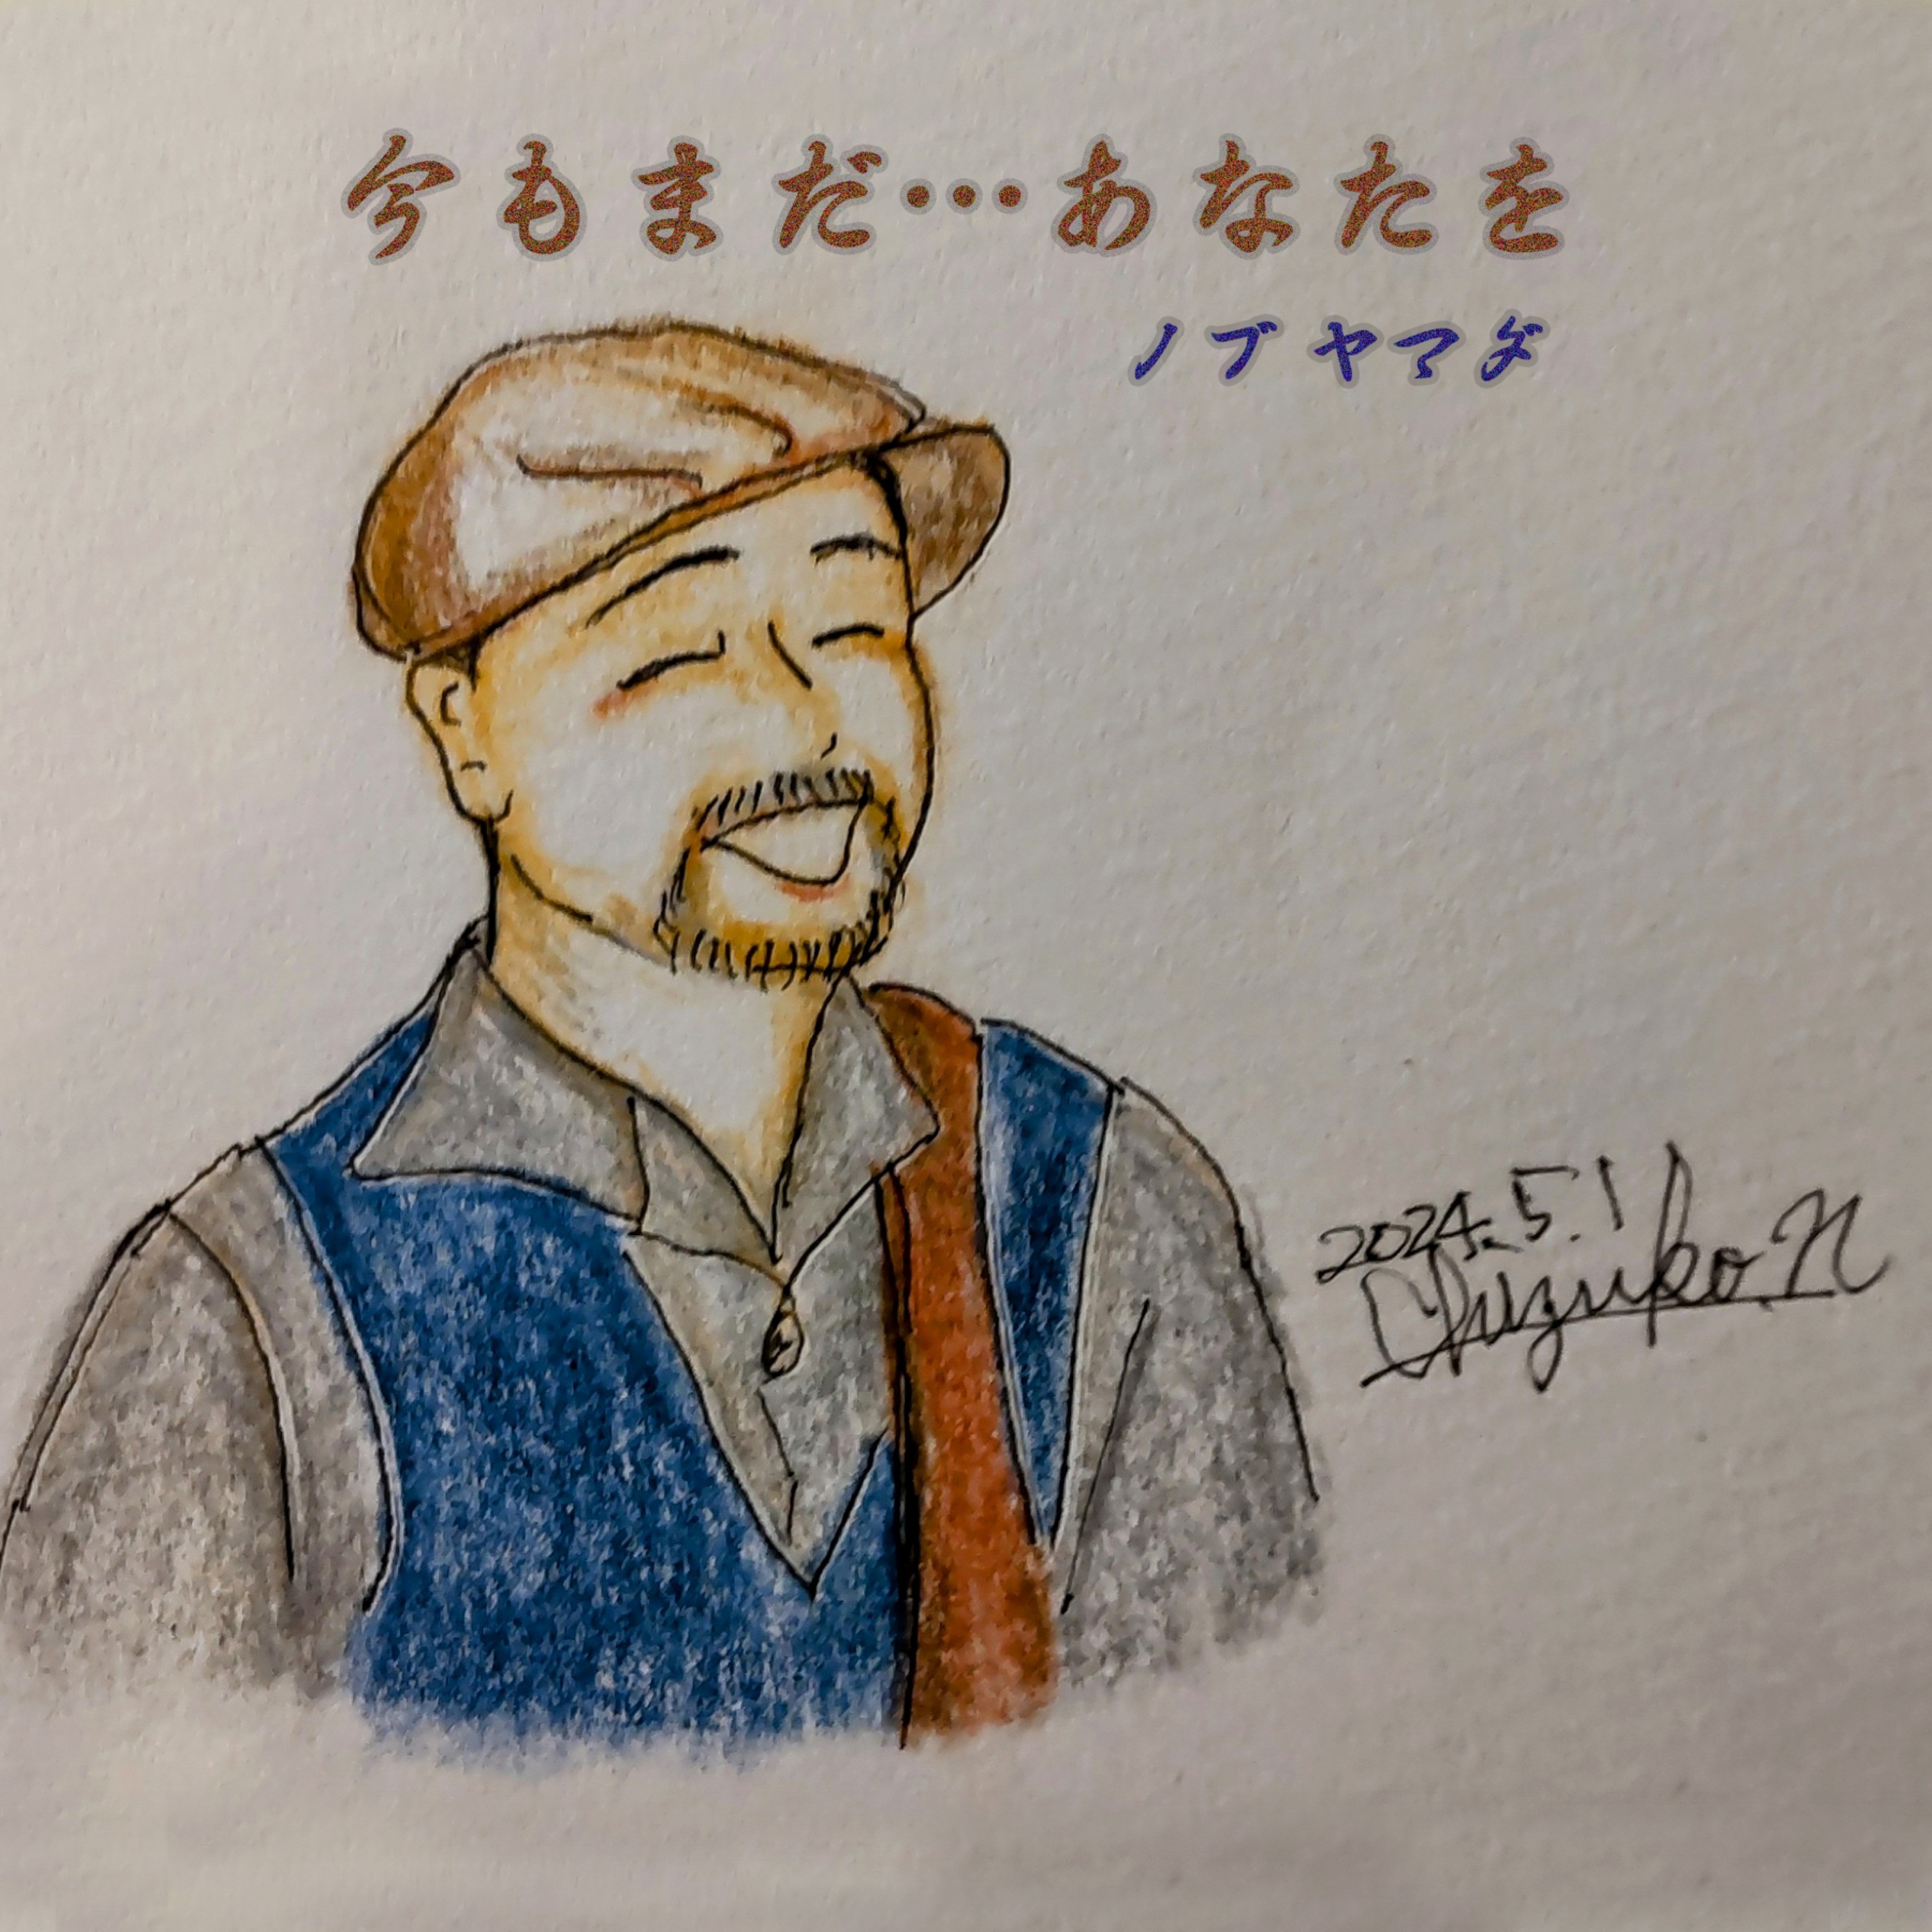 今もまだ…あなたを
ノブヤマダ
2024.5.1
Chizuko.N